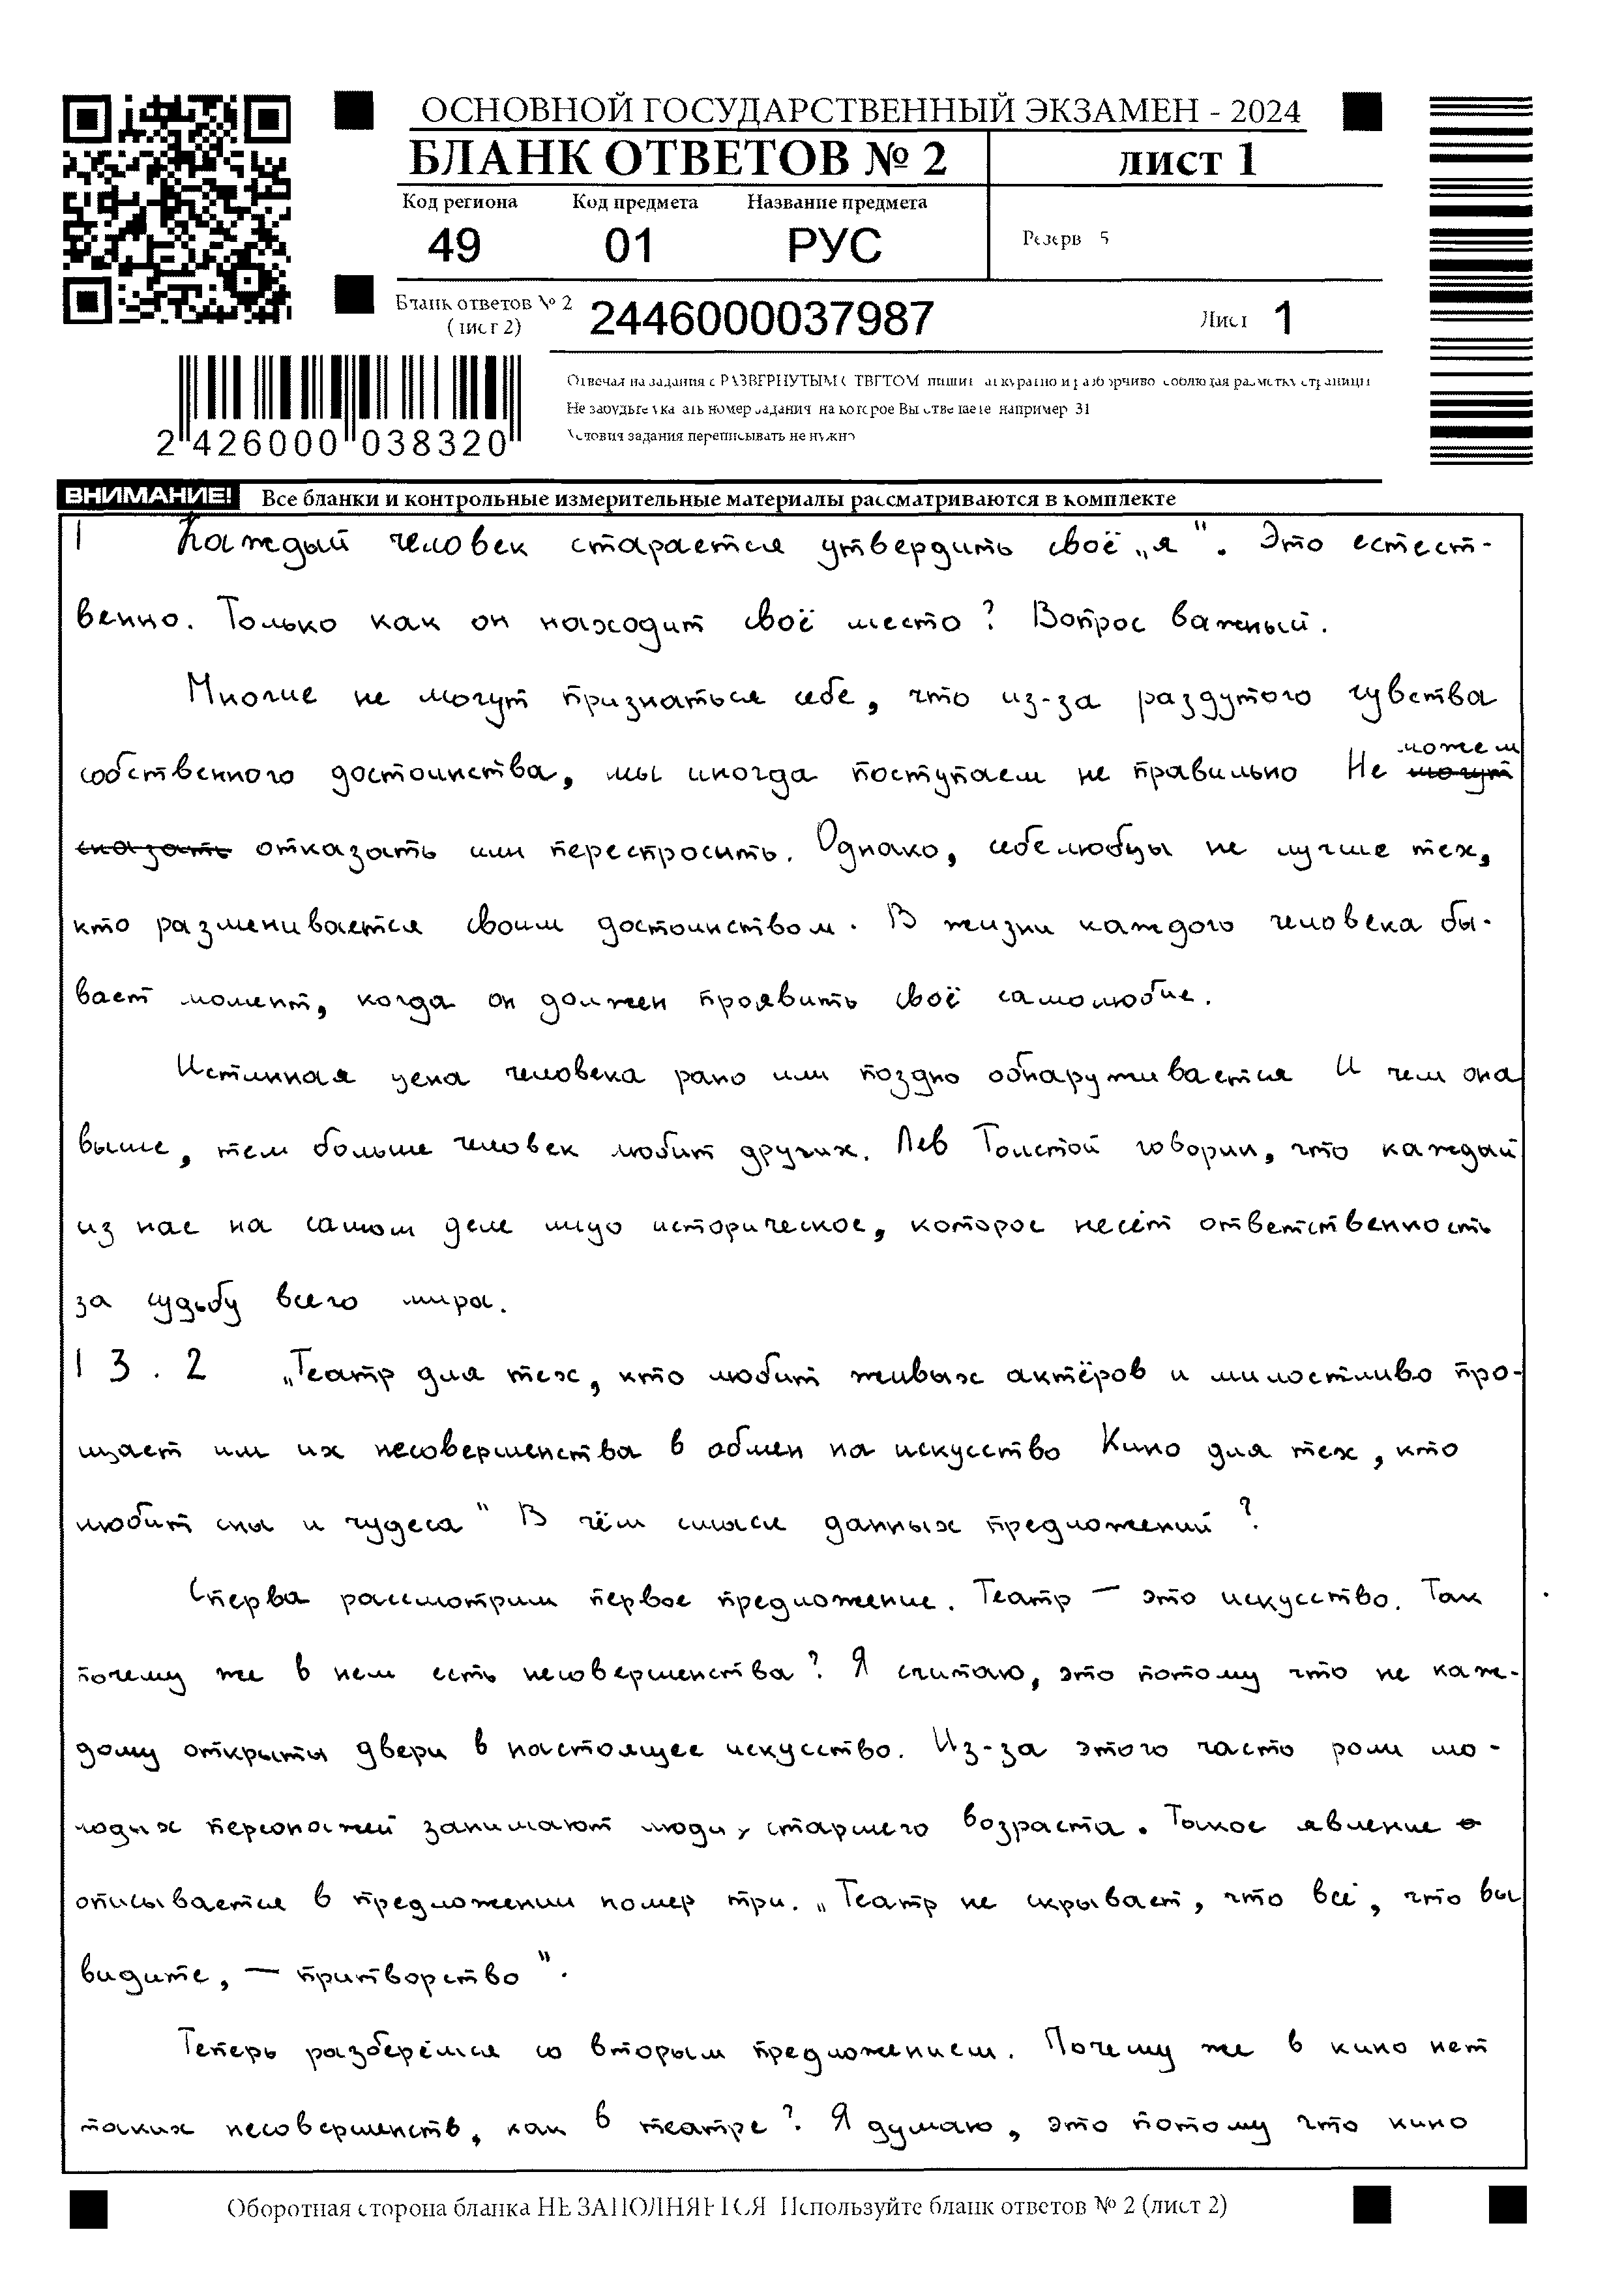 ОСНОВНОЙ ГОСУДАРСТВЕННЫЙ ЭКЗАМЕН - 2024
БЛАНК ОТВЕТОВ № 2 лист 1
Код региона Код предмета Название предмета
49 01 РУС Резерв 5
Бланк ответов № 2
(лист 2) 2446000037987 Лист 1
2 426000 038320
Отвечая на задания с РАЗВЕРНУТЫМ ОТВЕТОМ пишите аккуратно и разборчиво соблюдая разметку страницы
Не забудьте указать номер задания на которое Вы отвечаете например 31
Условия задания переписывать не нужно
ВНИМАНИЕ! Все бланки и контрольные измерительные материалы рассматриваются в комплекте
1 Каждый человек старается утвердить своё „я". Это естест-
венно. Только как он находит своё место? Вопрос важный.
Многие не могут признаться себе, что из-за раздутого чувства
собственного достоинства, мы иногда поступаем не правильно Не можем
отказать или переспросить. Однако, себелюбцы не лучше тех,
кто разменивается своим достоинством. В жизни каждого человека бы-
вает момент, когда он должен проявить своё самолюбие.
Истинная цена человека рано или поздно обнаруживается И чем она
выше, тем больше человек любит других. Лев Толстой говорил, что каждый
из нас на самом деле лицо историческое, которое несёт ответственность
за судьбу всего мира.
13.2 „Театр для тех, кто любит живых актёров и милостливо про-
щает им их несовершенства в обмен на искусство Кино для тех, кто
любит сны и чудеса" В чём смысл данных предложений?
Сперва рассмотрим первое предложение. Театр — это искусство. Так
почему же в нем есть несовершенства? Я считаю, это потому что не каж-
дому открыты двери в настоящее искусство. Из-за этого часто роли мо-
лодых персонажей занимают люди, старшего возраста. Такое явление
описывается в предложении номер три. „Театр не скрывает, что всё, что вы
видите, — притворство".
Теперь разберёмся со вторым предложением. Почему же в кино нет
таких несовершенств, как в театре? Я думаю, это потому что кино
Оборотная сторона бланка НЕ ЗАПОЛНЯЕТСЯ Используйте бланк ответов № 2 (лист 2)